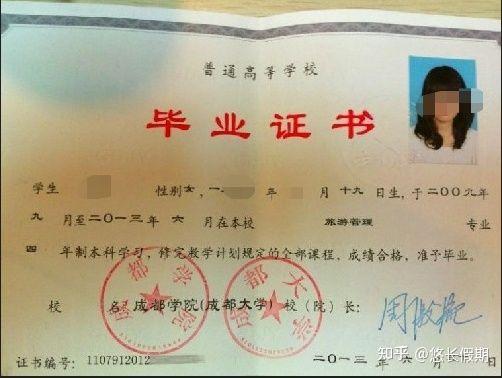 普通高等学校
毕业证书
学生 性别女，一 年 月十九日生，于二〇〇九年
九月至二〇一三年 六月在本校 旅游管理 专业
四年制本科学习，修完教学计划规定的全部课程，成绩合格，准予毕业。
成都学院
成都大学
校 名：成都学院(成都大学) 校（院）长：
证书编号：1107912012
二〇一三年 六月
知乎 @悠长假期